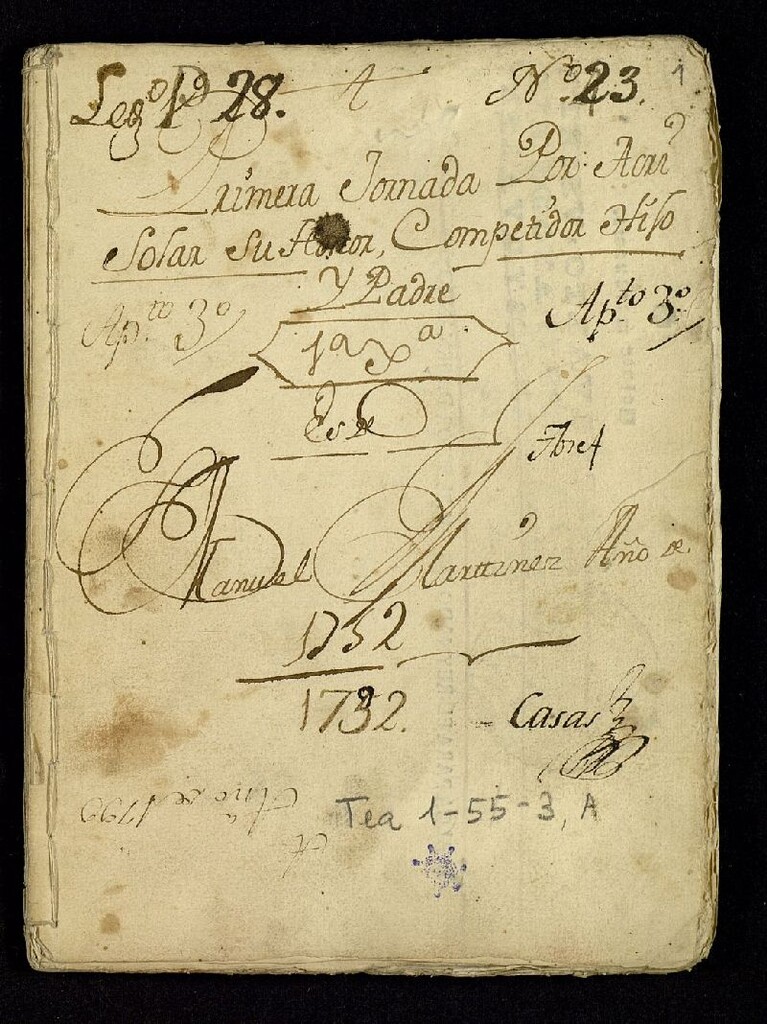 Leg.º 1º 28. 4 Nº 23. 1
Primera Jornada Por Acri
Solar Su Honor, Competidor Hiso
Y Padre
Ap.to 3º Ap.to 3º
1ª Xª
Es de
Manuel Martinez Año de
1732
1732.
Casas
Año de 1799
Tea 1-55-3, A